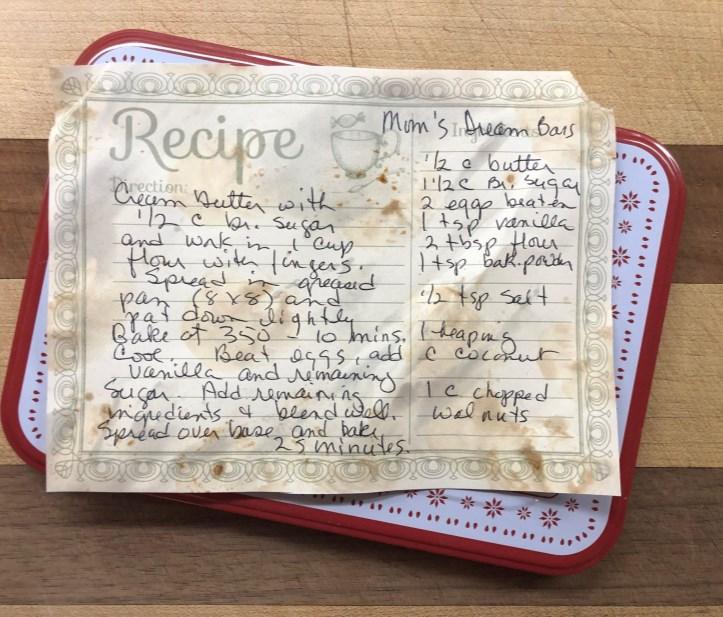 Recipe
Mom's Dream Bars
Direction:
Cream Butter with
1/2 c br. sugar
and work in 1 cup
flour with fingers.
Spread in greased
pan (8x8) and
pat down lightly
Bake at 350 - 10 mins.
Cool. Beat eggs, add
vanilla and remaining
sugar. Add remaining
ingredients & blend well.
Spread over base and bake
25 minutes.
1/2 c butter
1 1/2 c Br. Sugar
2 eggs beaten
1 tsp vanilla
2 tbsp flour
1 tsp bak. powder
1/2 tsp salt
1 heaping
c coconut
1 c chopped
walnuts